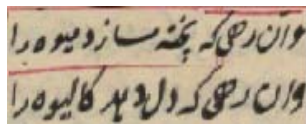 وان رهی که پخته سازد میوه را
وان رهی که دل دهد کالیوه را